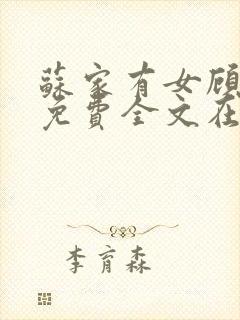 蘇家有女顧
免費全文在
李育森